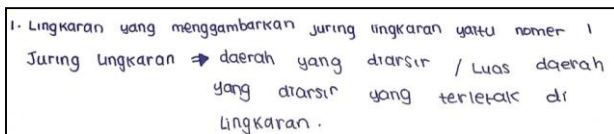 1. Lingkaran yang menggambarkan juring lingkaran yaitu nomer 1
Juring lingkaran ⇒ daerah yang diarsir / Luas daerah
yang diarsir yang terletak di
Lingkaran.